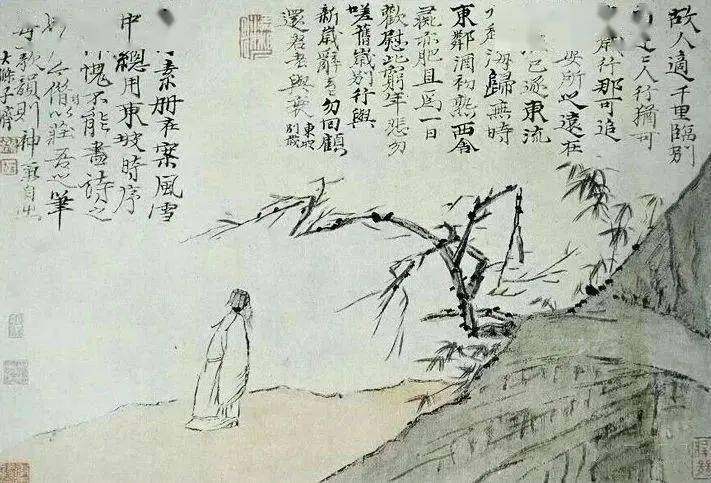 故人適千里臨別
人行猶可
歲行那可追
安所之遠在
已逐東流
海歸無時
東鄰酒初熟西舍
彘亦肥且為一日
歡慰此窮年悲勿
嗟舊歲別行與
新歲辭去〻勿回顧
還君老與衰 東坡別歲
素册在案風雪
中總用東坡時序
愧不能盡詩之
借以莊吾之筆
歌韻則神氣自出
大滌子濟